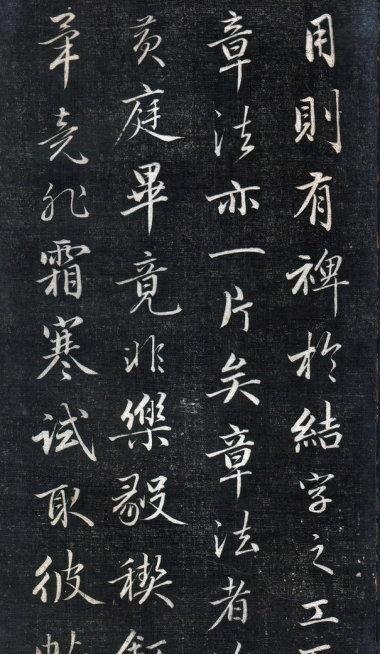 用則有裨於結字之工
章法亦一片矣章法者
黃庭畢竟非樂毅稧
畢竟非霜寒試取彼帖